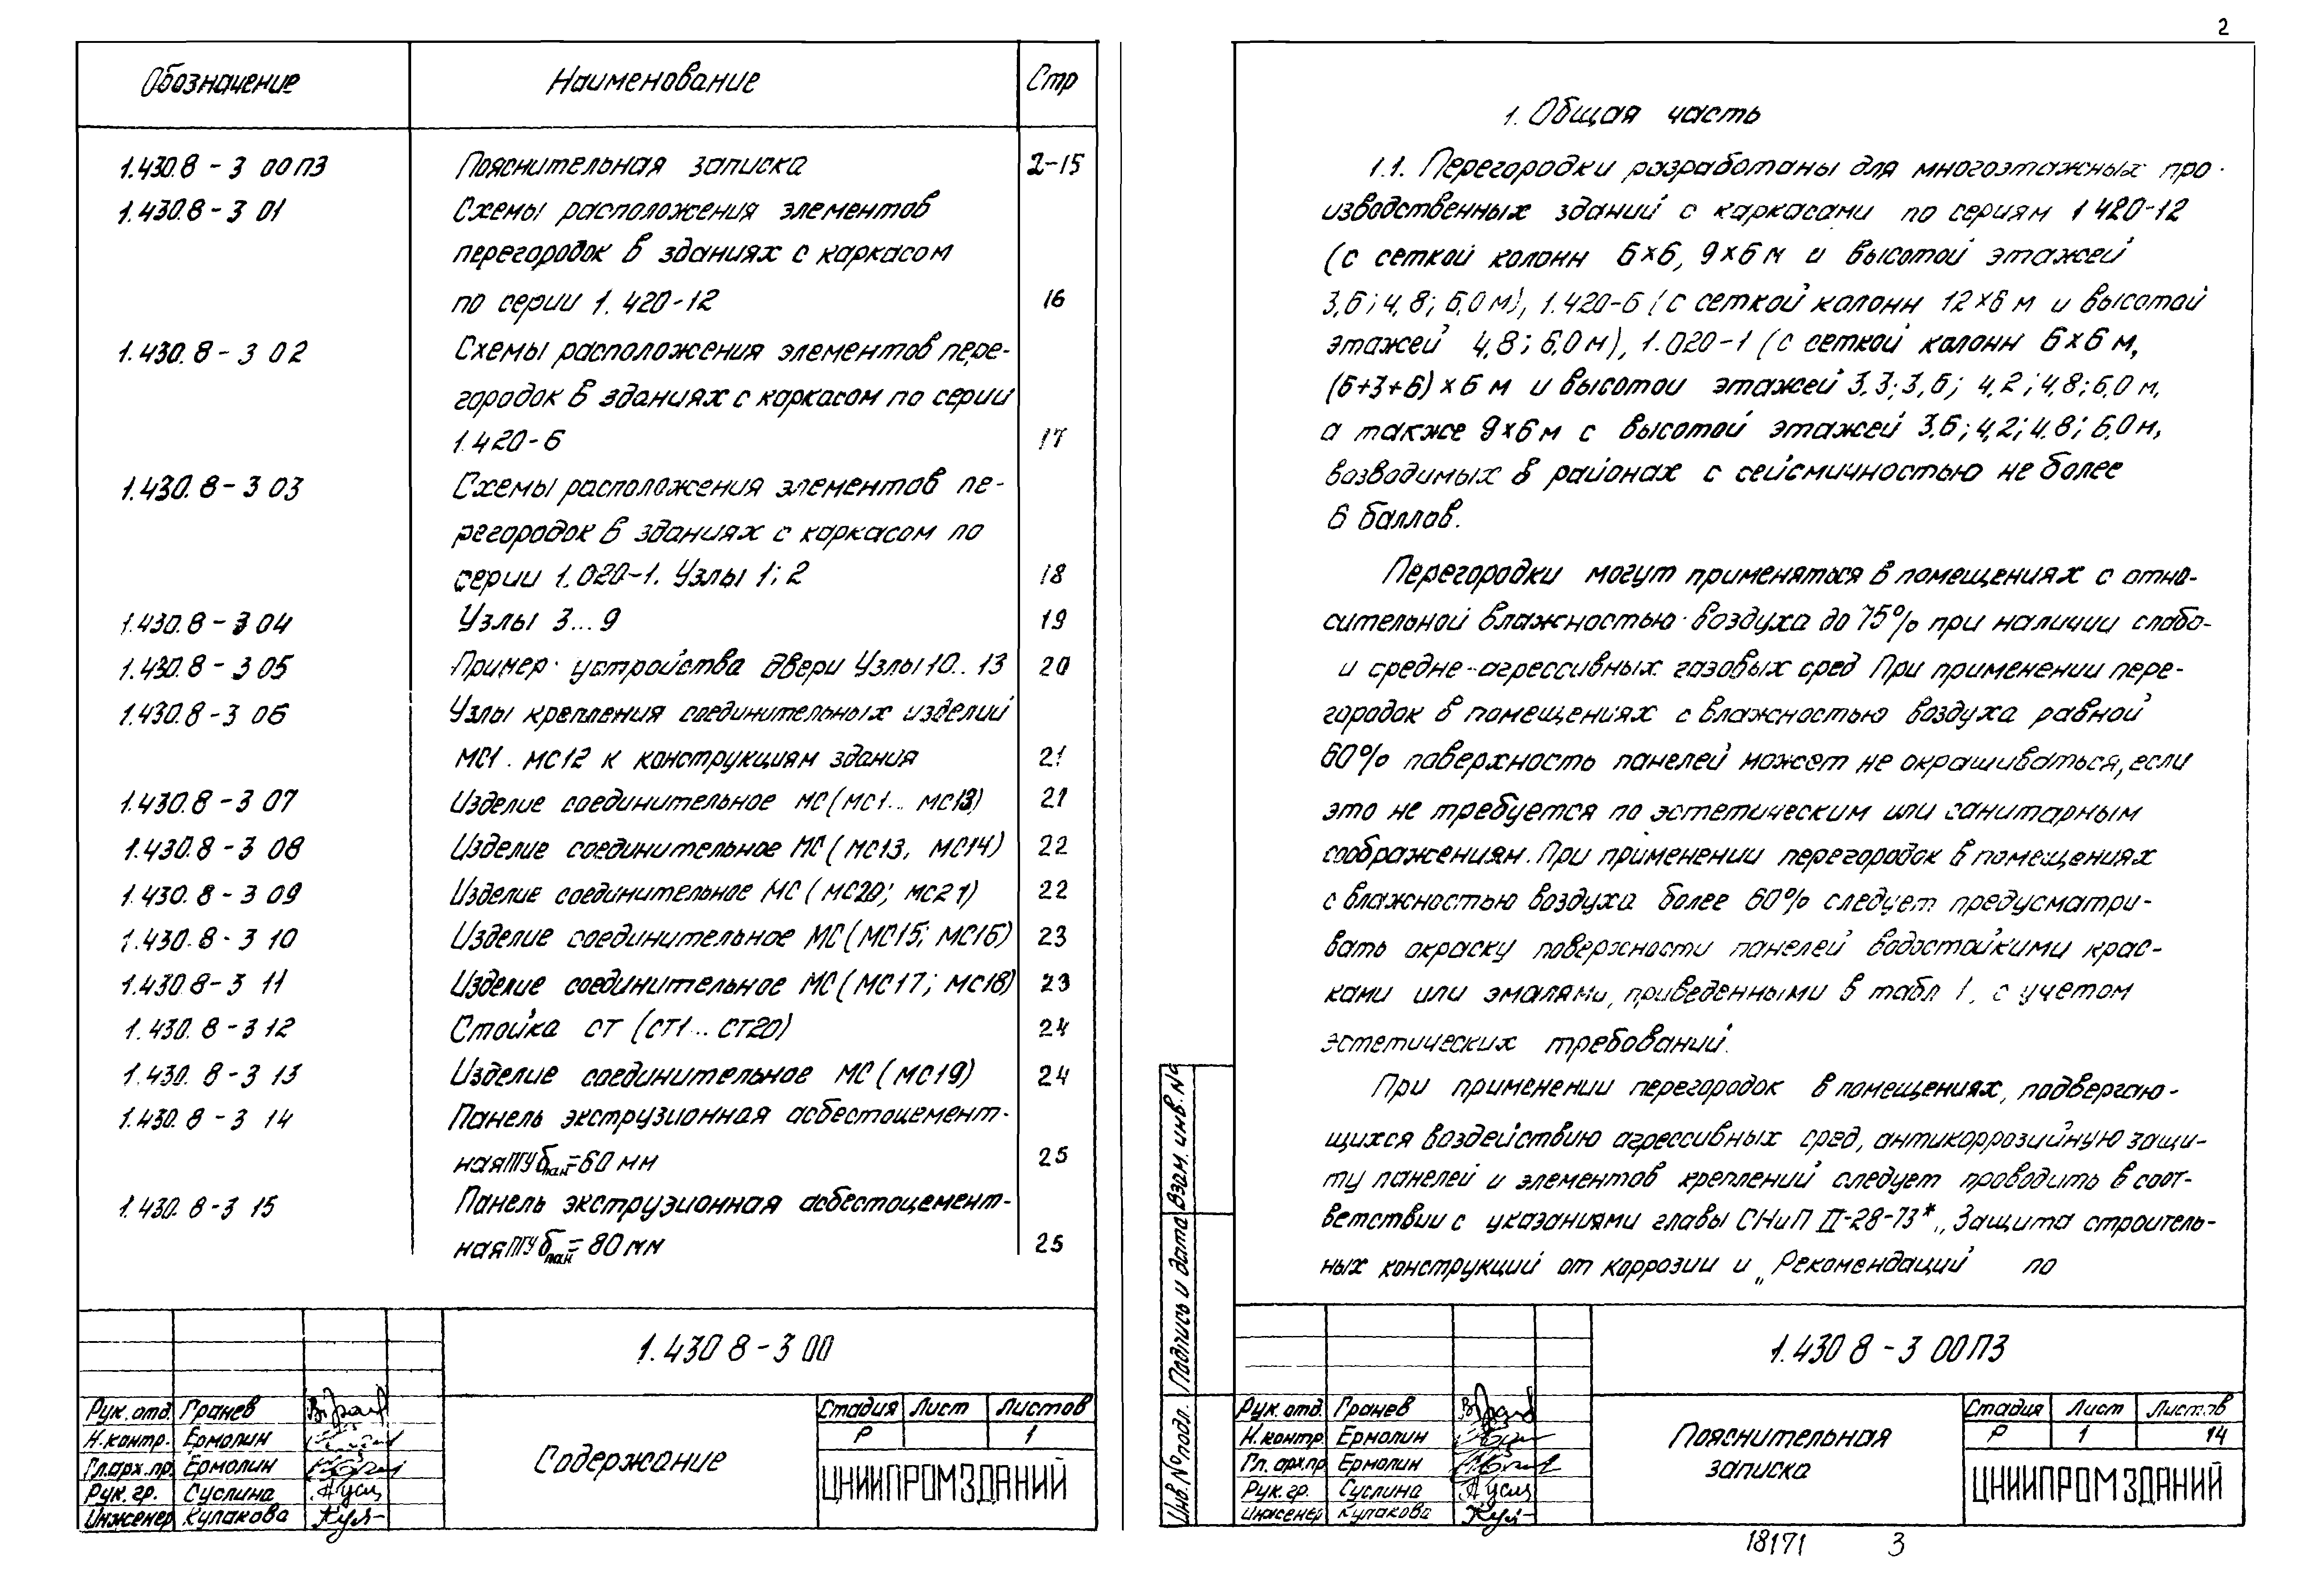 2
Обозначение Наименование Стр
1.430.8-3 00ПЗ Пояснительная записка 2-15
1.430.8-3 01 Схемы расположения элементов
перегородок в зданиях с каркасом
по серии 1.420-12 16
1.430.8-3 02 Схемы расположения элементов пере-
городок в зданиях с каркасом по серии
1.420-6 17
1.430.8-3 03 Схемы расположения элементов пе-
регородок в зданиях с каркасом по
серии 1.020-1. Узлы 1; 2 18
1.430.8-3 04 Узлы 3...9 19
1.430.8-3 05 Пример устройства двери Узлы 10..13 20
1.430.8-3 06 Узлы крепления соединительных изделий
МС1. МС12 к конструкциям здания 21
1.430.8-3 07 Изделие соединительное МС (МС1... МС13) 21
1.430.8-3 08 Изделие соединительное МС (МС13, МС14) 22
1.430.8-3 09 Изделие соединительное МС (МС20; МС21) 22
1.430.8-3 10 Изделие соединительное МС (МС15; МС16) 23
1.430 8-3 11 Изделие соединительное МС (МС17; МС18) 23
1.430.8-3 12 Стойка СТ (СТ1... СТ20) 24
1.430.8-3 13 Изделие соединительное МС (МС19) 24
1.430.8-3 14 Панель экструзионная асбестоцемент-
ная ПГУ бпан=60 мм 25
1.430.8-3 15 Панель экструзионная асбестоцемент-
ная ПГУ бпан=80 мм 25
1.430 8-3 00
Рук. отд. Гранев
Н. контр. Ермолин
Гл.арх.пр. Ермолин
Рук. гр. Суслина
Инженер Кулакова
Содержание
Стадия Лист Листов
Р 1
ЦНИИПРОМЗДАНИЙ
1. Общая часть
1.1. Перегородки разработаны для многоэтажных про-
изводственных зданий с каркасами по сериям 1 420-12
(с сеткой колонн 6×6, 9×6 м и высотой этажей
3,6; 4,8; 6,0 м), 1.420-6 (с сеткой колонн 12×6 м и высотой
этажей 4,8; 6,0 м), 1.020-1 (с сеткой колонн 6×6 м,
(6+3+6)×6 м и высотой этажей 3,3; 3,6; 4,2; 4,8; 6,0 м,
а также 9×6 м с высотой этажей 3,6; 4,2; 4,8; 6,0 м,
возводимых в районах с сейсмичностью не более
6 баллов.
Перегородки могут применяться в помещениях с отно-
сительной влажностью воздуха до 75% при наличии слабо-
и средне-агрессивных газовых сред При применении пере-
городок в помещениях с влажностью воздуха равной
60% поверхность панелей может не окрашиваться, если
это не требуется по эстетическим или санитарным
соображениям. При применении перегородок в помещениях
с влажностью воздуха более 60% следует предусматри-
вать окраску поверхности панелей водостойкими крас-
ками или эмалями, приведенными в табл 1, с учетом
эстетических требований.
При применении перегородок в помещениях, подвергаю-
щихся воздействию агрессивных сред, антикоррозийную защи-
ту панелей и элементов креплений следует проводить в соот-
ветствии с указаниями главы СНиП II-28-73* „Защита строитель-
ных конструкций от коррозии и „Рекомендаций по
Взам. инв. №
Подпись и дата
Инв. № подл.
1.430 8-3 00ПЗ
Рук. отд. Гранев
Н. контр Ермолин
Гл. арх.пр Ермолин
Рук. гр. Суслина
Инженер Кулакова
Пояснительная
записка
Стадия Лист Листов
Р 1 14
ЦНИИПРОМЗДАНИЙ
18171 3